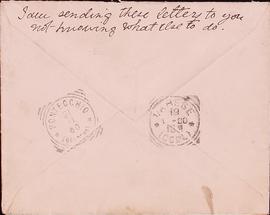 I am sending these letters to you
not knowing what else to do.
PONTECCHIO